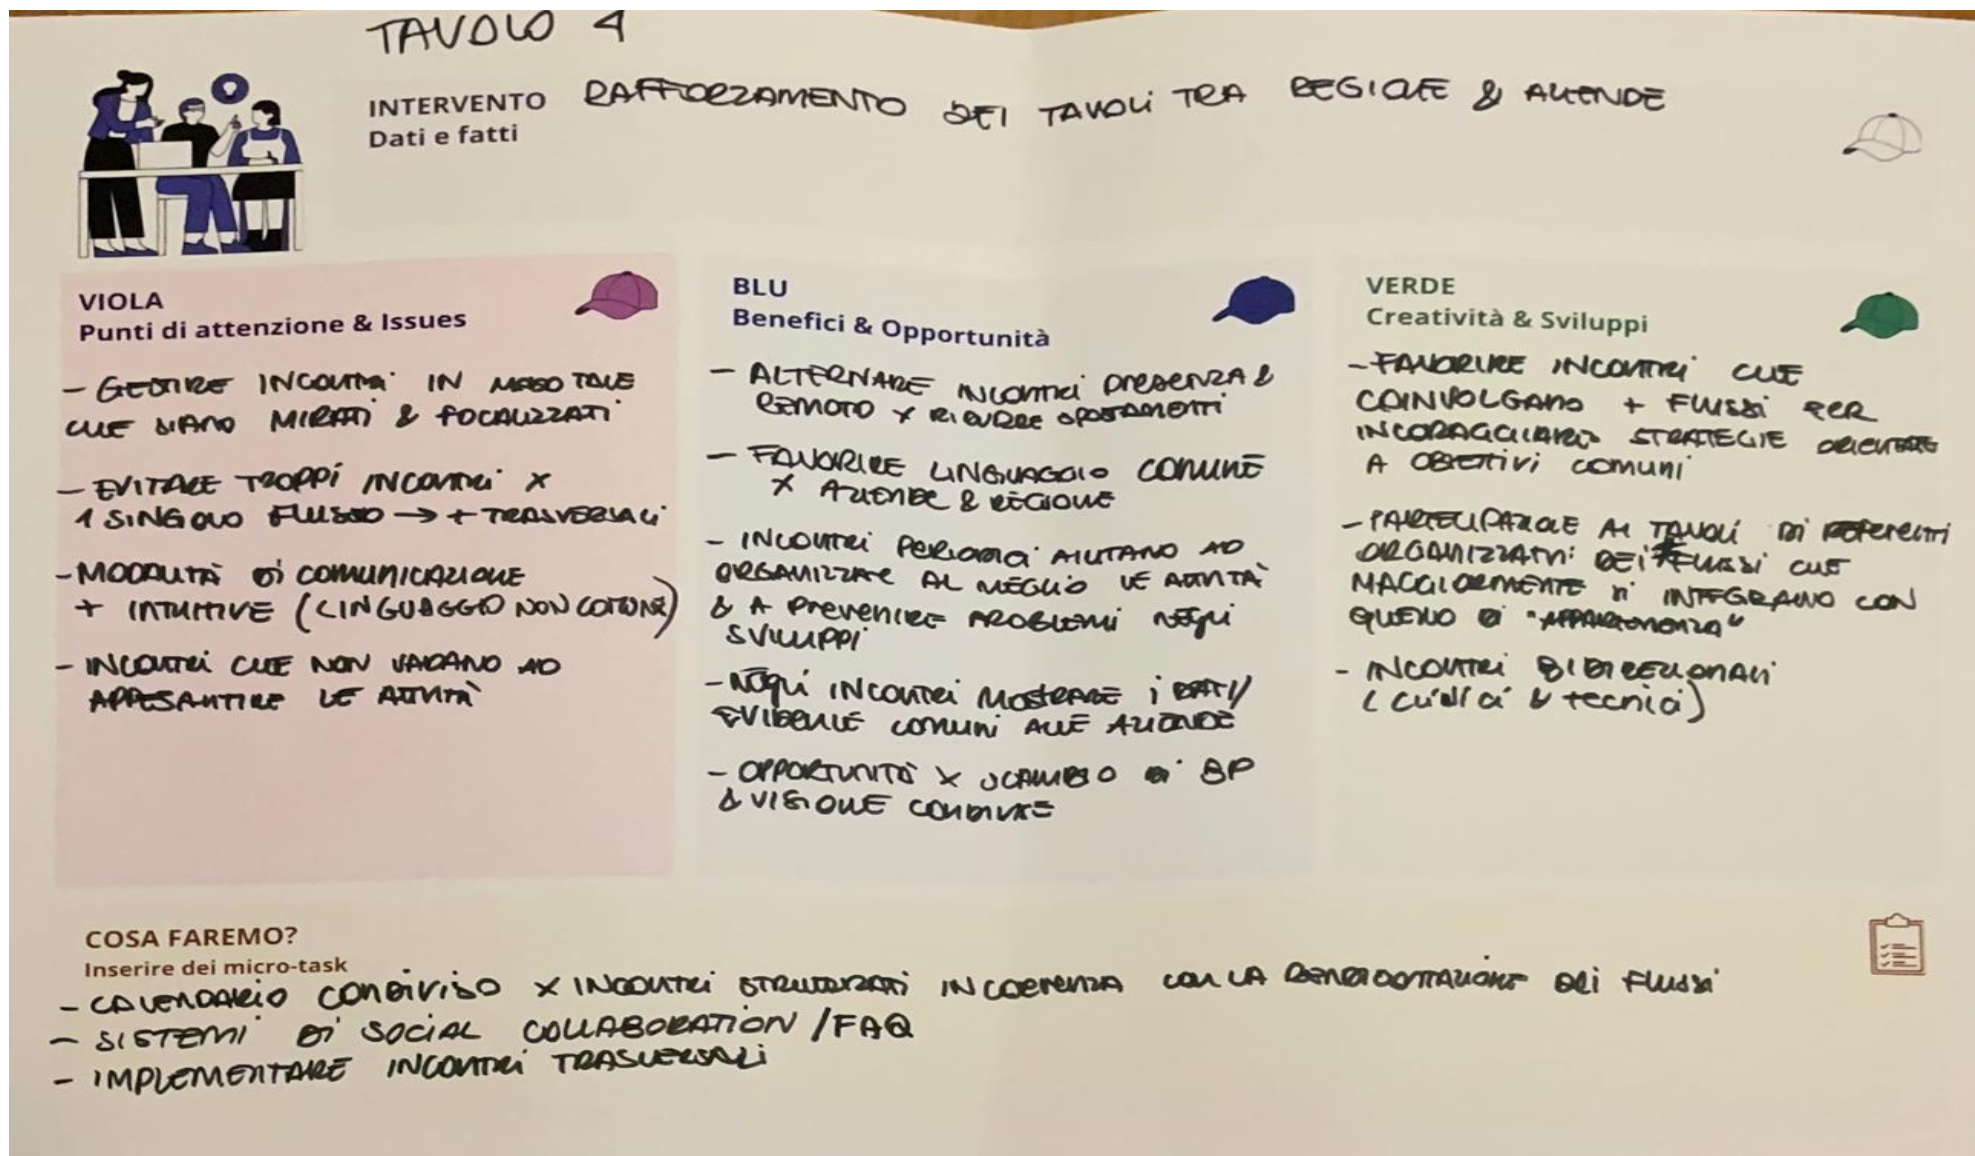 TAVOLO 4
INTERVENTO RAFFORZAMENTO DEI TAVOLI TRA REGIONE & AZIENDE
Dati e fatti
VIOLA
Punti di attenzione & Issues
- GESTIRE INCONTRI IN MODO TALE
CHE SIANO MIRATI & FOCALIZZATI
- EVITARE TROPPI INCONTRI X
1 SINGOLO FLUSSO → + TRASVERSALI
- MODALITÀ DI COMUNICAZIONE
+ INTUITIVE (LINGUAGGIO NON COMUNE)
- INCONTRI CHE NON VADANO AD
APPESANTIRE LE ATTIVITÀ
BLU
Benefici & Opportunità
- ALTERNARE INCONTRI PRESENZA &
REMOTO X RIDURRE SPOSTAMENTI
- FAVORIRE LINGUAGGIO COMUNE
X AZIENDE & REGIONE
- INCONTRI PERIODICI AIUTANO AD
ORGANIZZARE AL MEGLIO LE ATTIVITÀ
& A PREVENIRE PROBLEMI NEGLI
SVILUPPI
- NEGLI INCONTRI MOSTRARE I DATI/
EVIDENZE COMUNI ALLE AZIENDE
- OPPORTUNITÀ X SCAMBIO DI BP
& VISIONE CONDIVISE
VERDE
Creatività & Sviluppi
- FAVORIRE INCONTRI CHE
COINVOLGANO + FLUSSI PER
INCORAGGIARE STRATEGIE ORIENTATE
A OBIETTIVI COMUNI
- PARTECIPAZIONE AI TAVOLI DI REFERENTI
ORGANIZZATIVI DEI FLUSSI CHE
MAGGIORMENTE SI INTEGRANO CON
QUELLO DI "APPARTENENZA"
- INCONTRI BIDIREZIONALI
(CLINICI & TECNICI)
COSA FAREMO?
Inserire dei micro-task
- CALENDARIO CONDIVISO X INCONTRI STRUTTURATI IN COERENZA CON LA RENDICONTAZIONE DEI FLUSSI
- SISTEMI DI SOCIAL COLLABORATION / FAQ
- IMPLEMENTARE INCONTRI TRASVERSALI